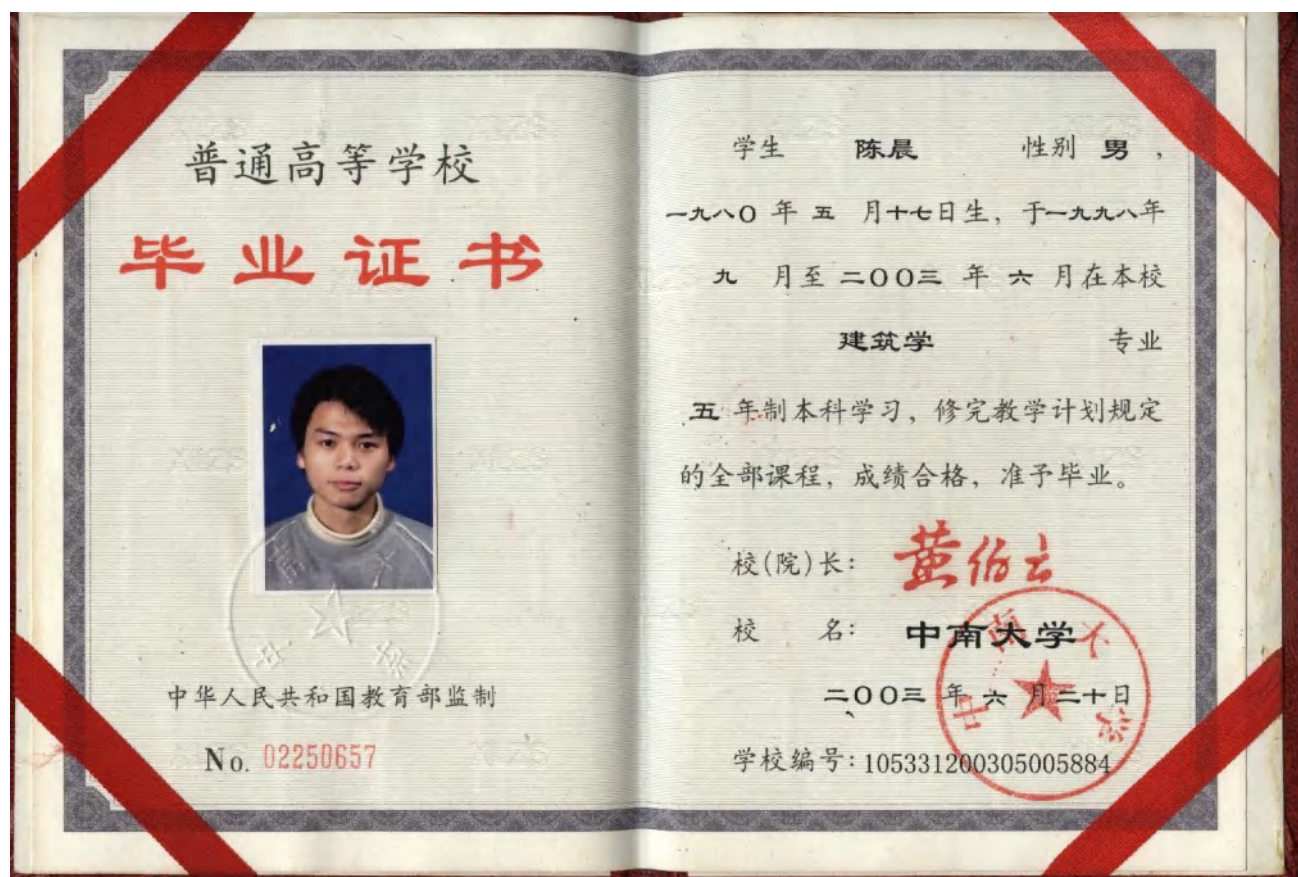 普通高等学校
毕业证书
中华人民共和国教育部监制
No. 02250657
学生 陈晨 性别 男，
一九八〇 年 五 月十七日生，于一九九八年
九 月至 二〇〇三 年 六 月在本校
建筑学 专业
五 年制本科学习，修完教学计划规定
的全部课程，成绩合格，准予毕业。
校(院)长： 黄伯云
校 名： 中南大学
二〇〇三 年 六 月二十日
学校编号：105331200305005884
中南大学
中南大学